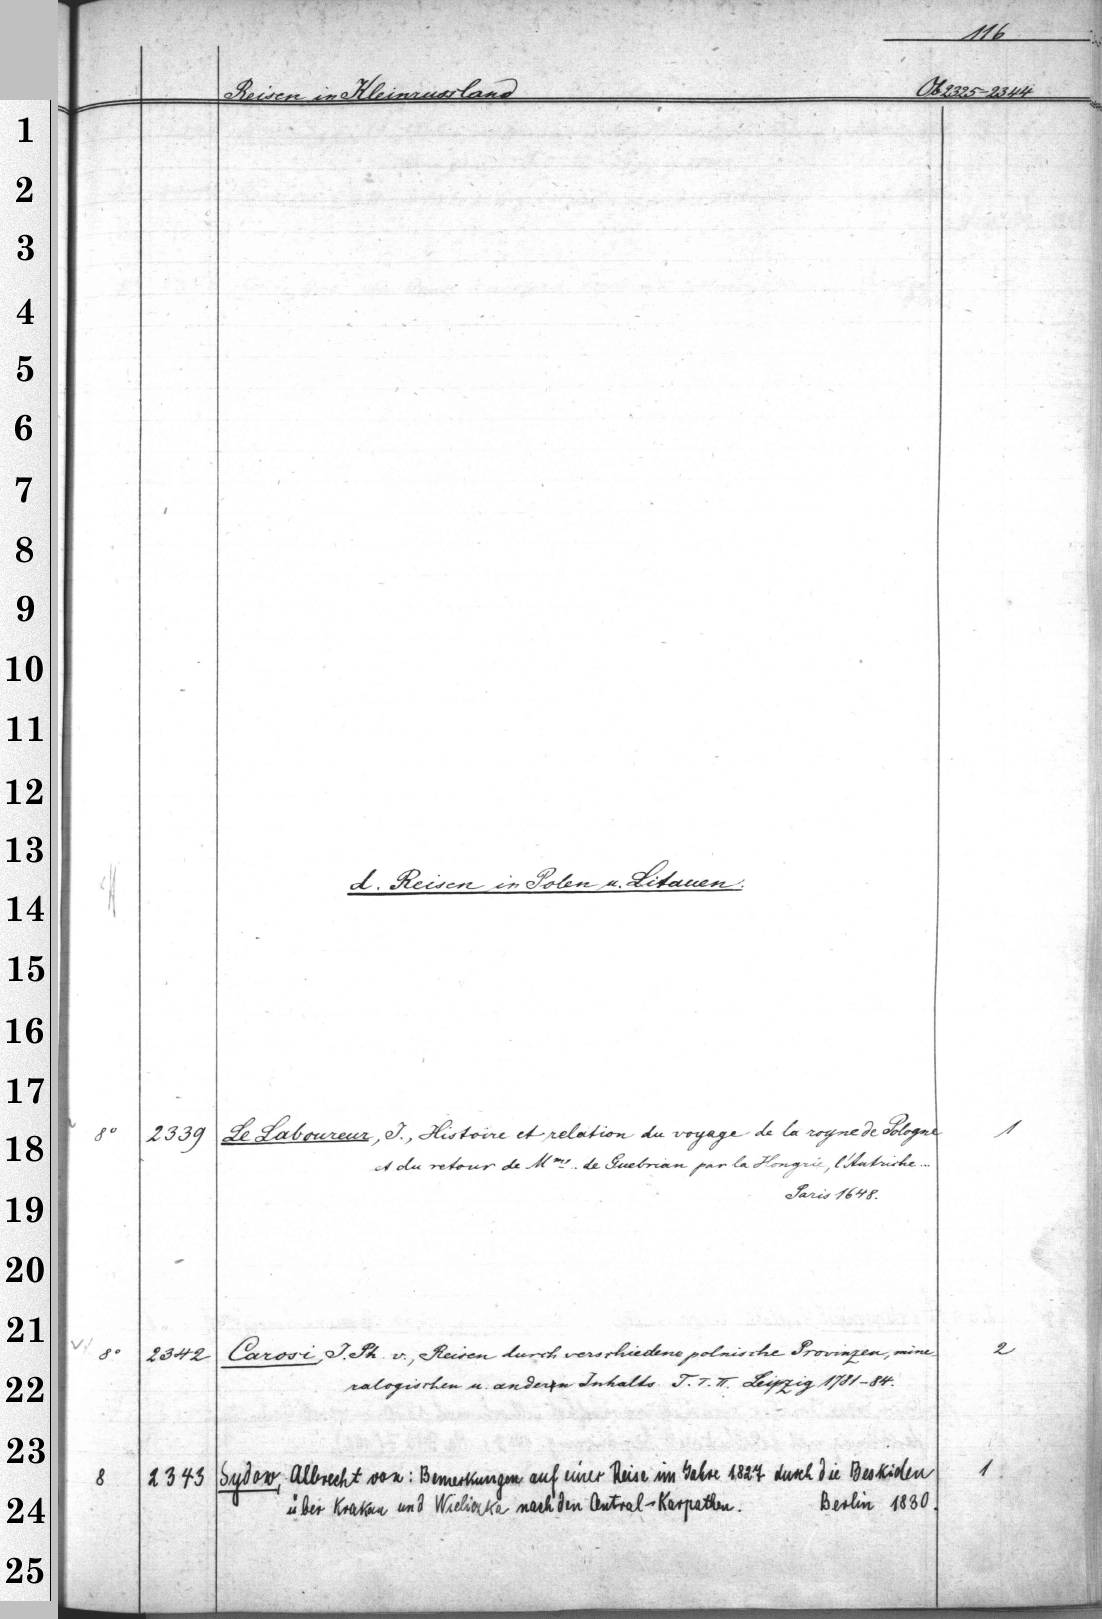 116
Reisen in Kleinrussland Ob 2325-2344
1
2
3
4
5
6
7
8
9
10
11
12
13
d. Reisen in Polen u. Litauen.
14
15
16
17
8° 2339 Le Laboureur, J., Histoire et relation du voyage de la royne de Pologne 1
18
et du retour de Mme. de Guebrian par la Hongrie, l'Autriche...
19
Paris 1648.
20
21
8° 2342 Carosi, J. Ph. v., Reisen durch verschiedene polnische Provinzen, mine 2
22
ralogischen u. andern Inhalts. T. I. II. Leipzig 1781-84.
23
8 2343 Sydow, Albrecht von: Bemerkungen auf einer Reise im Jahre 1827 durch die Beskiden 1
24
über Krakau und Wieliczka nach den Central-Karpathen. Berlin 1830.
25